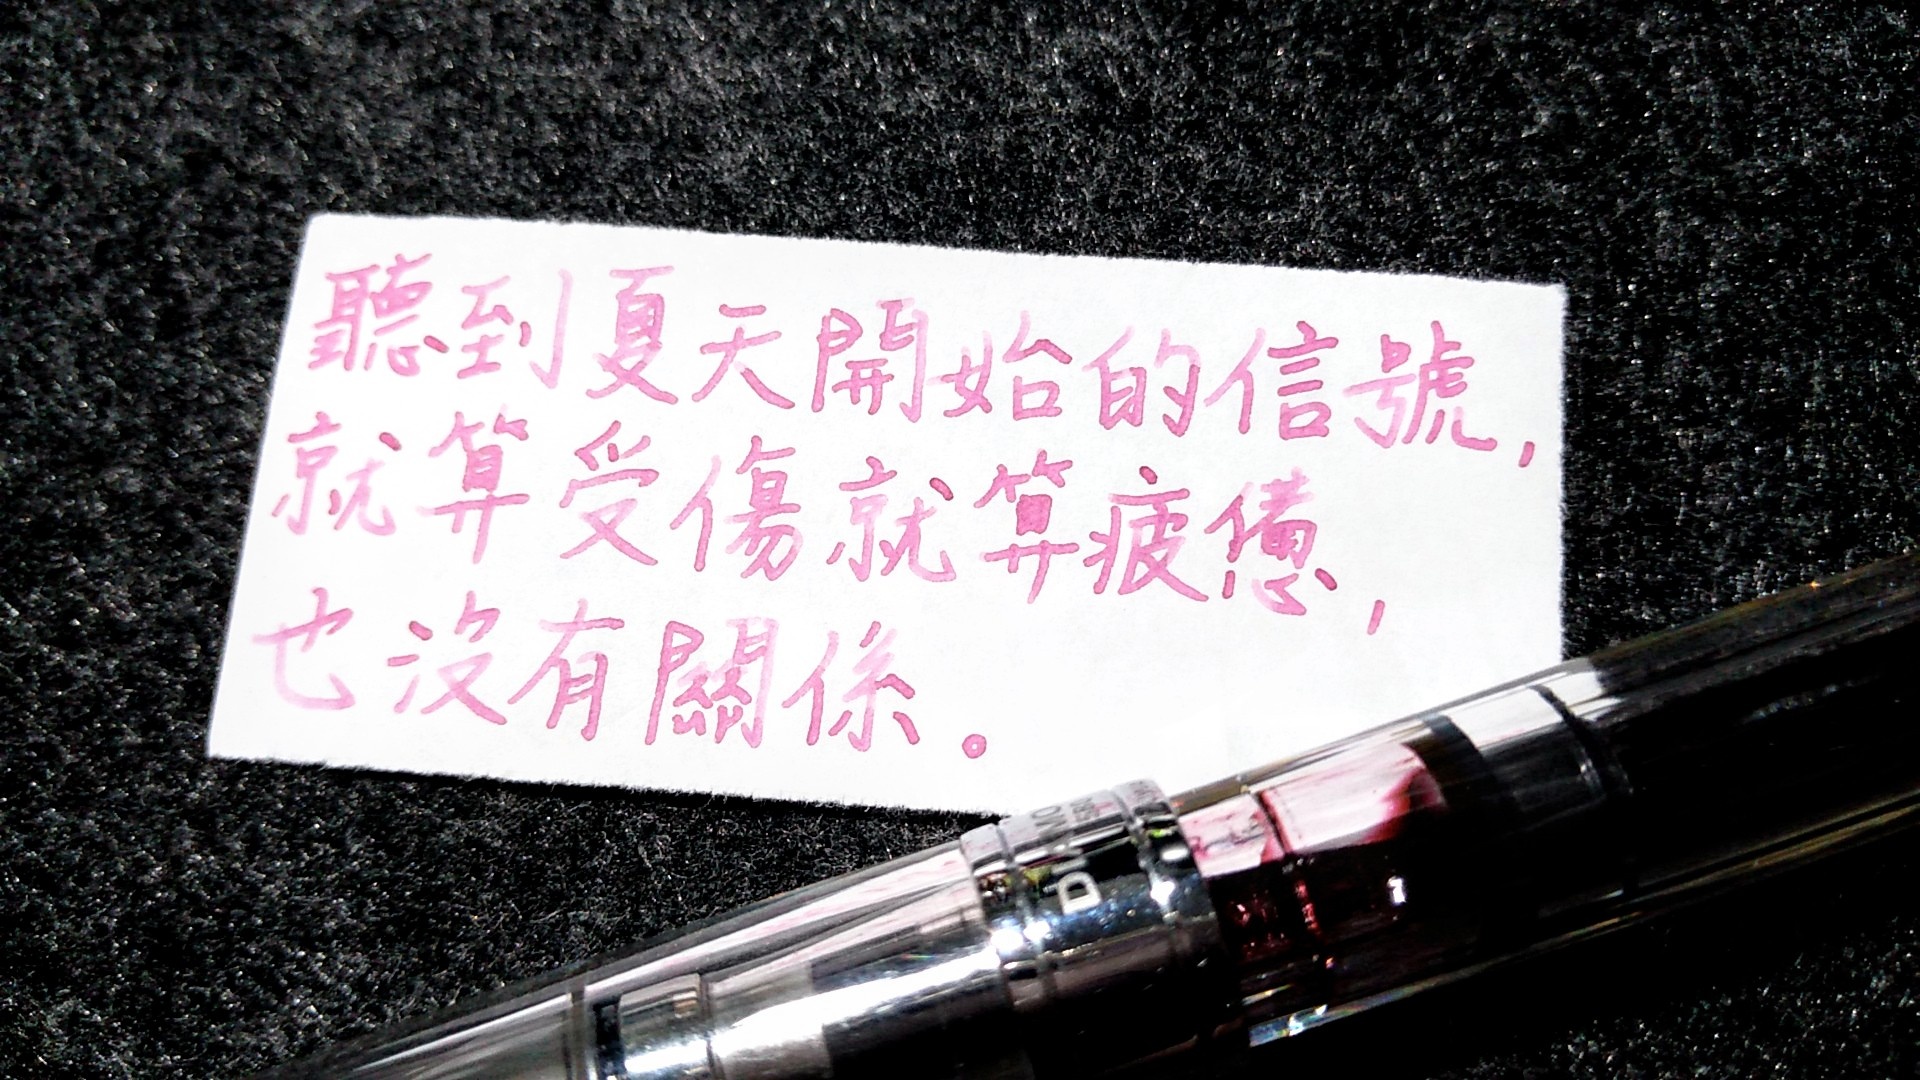 聽到夏天開始的信號，
就算受傷就算疲憊，
也沒有關係。